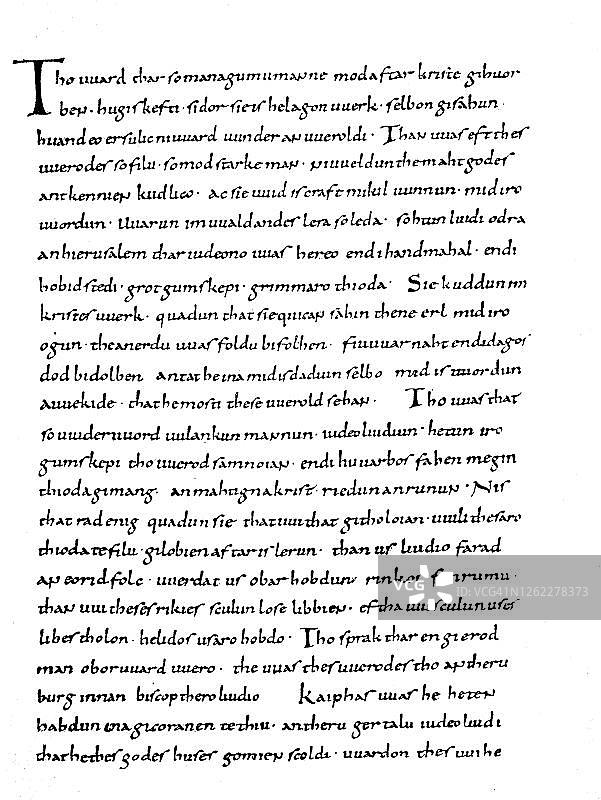 Tho uuard thar so managumu manne mod aftar kriste gihuor
ben · hugiskefti · sidor sie is helagon uuerk · selbon gisahun ·
huand eo er sulic ni uuard uunder an uueroldi · Than uuas eft thes
uuerodes so filu · so mod starke man · ni uueldun the maht godes
antkennien kudlico · ac sie uuid is craft mikil uunnun · mid iro
uuordun · Uuarun im uualdandes lera so leda · sohtun liudi odra
an hierusalem thar iudeono uuas hereo endi handmahal · endi
hobid stedi · grot gumskepi · grimmaro thioda · Sie kuddun im
kristes uuerk · quadun that sie quican sahin thene erl mid iro
ogun · the an erdu uuas foldu bifolhen · fiuuuar naht endi dagos
dod bidolben antat he ina mid is dadiun selbo mid is uuordun
auuekide · that he mosti these uuerold sehan · Tho uuas that
so uuideruuord uulankun mannun · iudeo liudiun · hetun iro
gumskepi tho uuerod samnoian · endi huuarbos fahen megin
thioda gimang · an mahtigna krist · riedun an runun · Nis
that rad enig quadun sie that uui that githoloian · uuili thesaro
thioda te filu · gilobien aftar is lerun · than us liudio farad
an eoridfolc · uuerdat us obar hobdun rinkos rumu ·
than uui theses rikies sculun lose libbien · eftha uui sculun uses
libes tholon · helidos usaro hobdo · Tho sprak thar en gierod
man obor uuard uuero · the uuas thes uuerodes tho an theru
burg innan biscop thero liudio Kaiphas uuas he heten
habdun ina gicoranen te thiu · an theru gertalu iudeo liudi
that he thes godes huses gomien scoldi · uuardon thes uuihe
VCG
ID: VCG41N1262278373